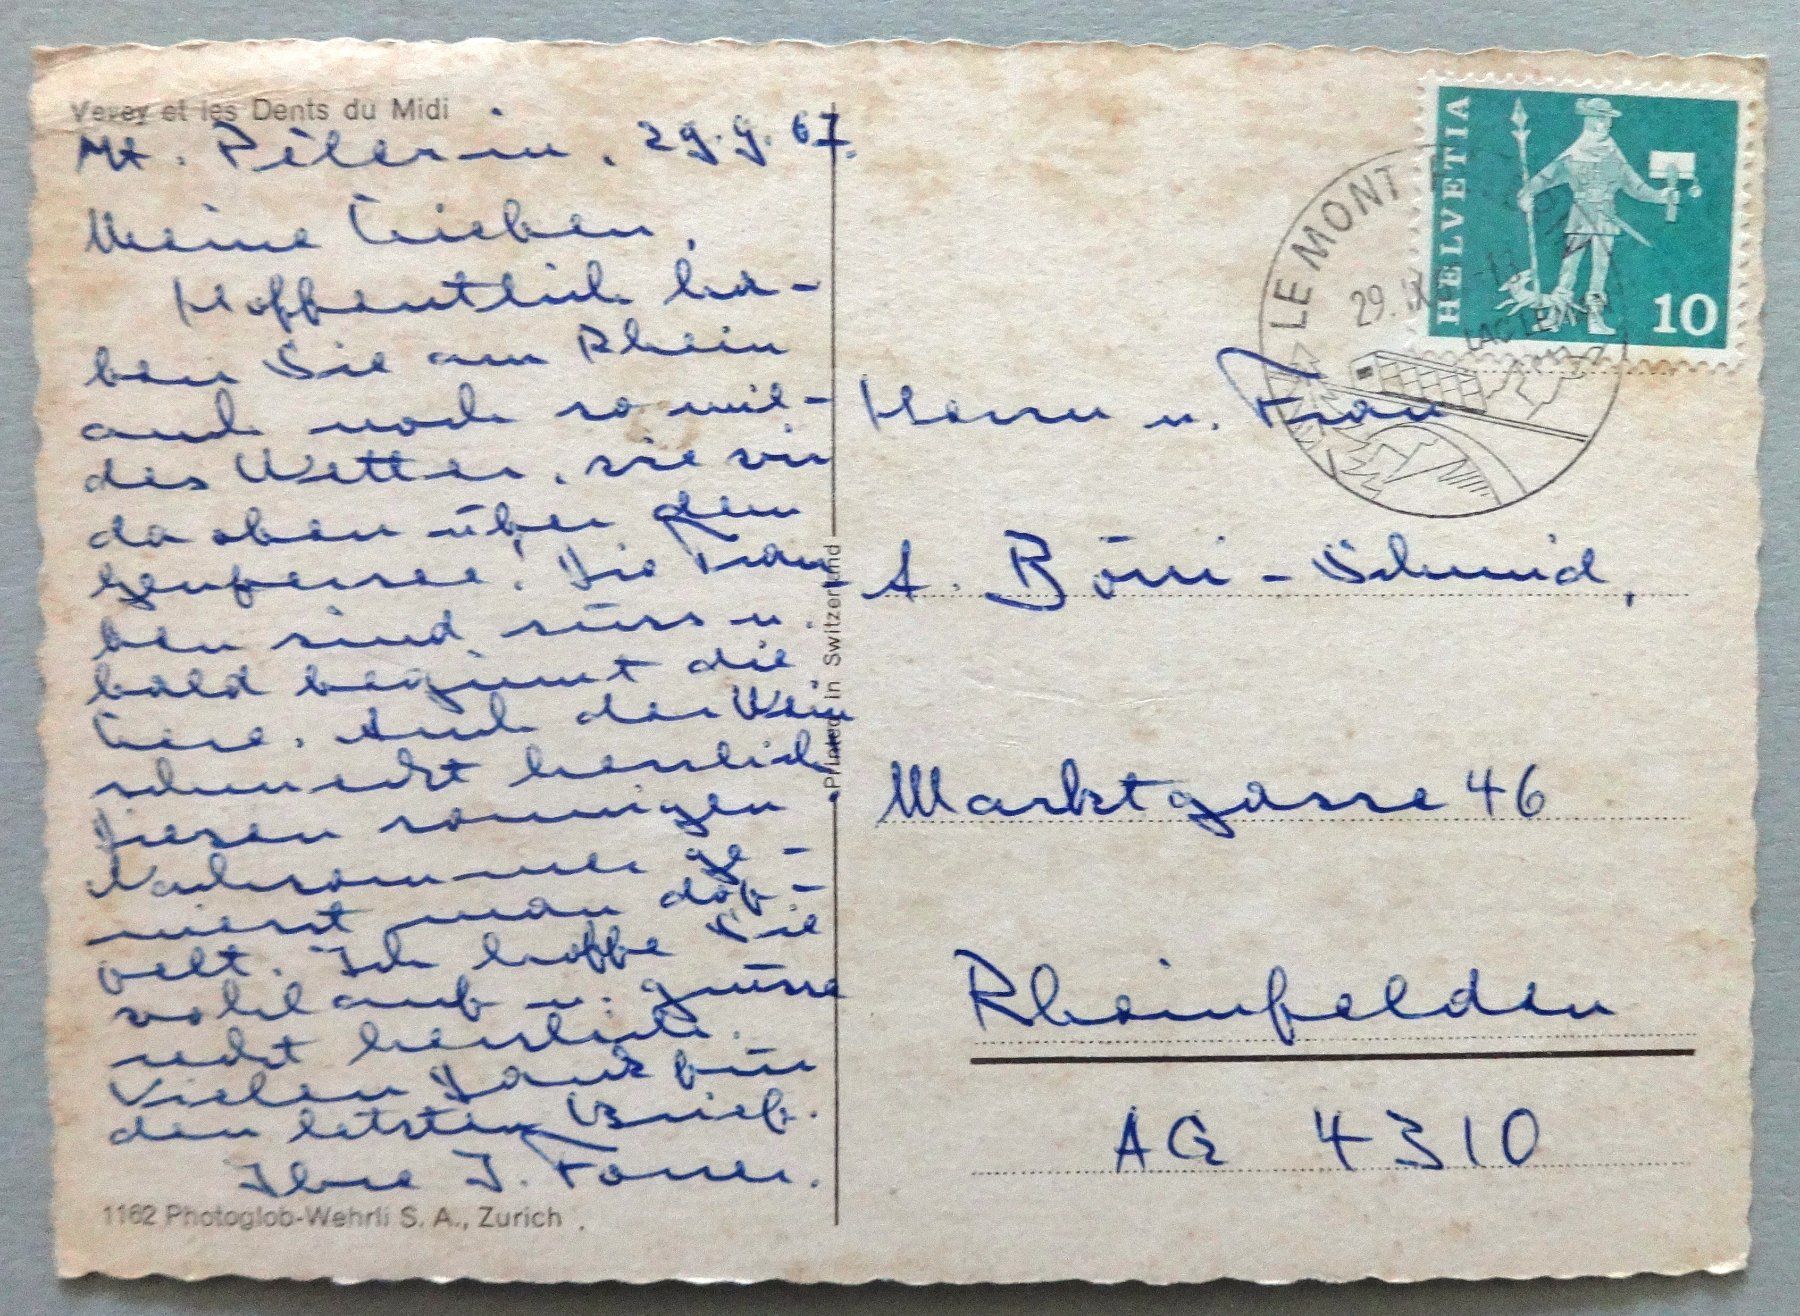 Vevey et les Dents du Midi
Mt. Pèlerin, 29.9.67.
Meine Lieben,
Hoffentlich ha-
ben Sie am Rhein
auch noch so mil-
des Wetter, wie wir
da oben über dem
Genfersee! Die Trau-
ben sind süss u.
bald beginnt die
Lese. Auch der Wein
schmeckt herrlich
Diesen sonnigen
Nachsommer ge-
niesst man dop-
pelt. Ich hoffe Sie
wohlauf u. grüsse
recht herzlich.
Vielen Dank für
den letzten Brief.
Ihre J. Forrer.
1162 Photoglob-Wehrli S. A., Zurich
Printed in Switzerland
HELVETIA
10
LE MONT
29. IX
LAC LEMAN
Herrn u. Frau
A. Börri-Schmid,
Marktgasse 46
Rheinfelden
AG 4310